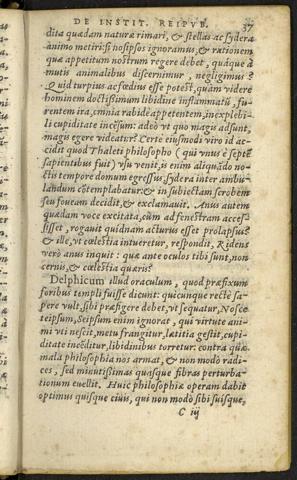 DE INSTIT. REIPVB. 37
dita quædam naturæ rimari, & stellas ac sydera
animo metiri: si nosipsos ignoramus, & rationem
quæ appetitum nostrum regere debet, quáque à
mutis animalibus discernimur, negligimus?
Quid turpius ac fœdius esse potest, quàm videre
hominem doctissimum libidine inflammatũ, fu-
rentem ira, omnia rabide appetentem, inexplebi-
li cupiditate incẽsum: adeò vt quo magis adsunt,
magis egere videatur? Certè eiusmodi viro id ac-
cidit quod Thaleti philosopho (qui vnus è septẽ
sapientibus fuit) vsu venit, is enim aliquãdo no-
ctis tempore domum egressus, sydera inter ambu-
landum cõtemplabatur: & in subiectam scrobem
seu foueam decidit, & exclamauit. Anus autem
quædam voce excitata, cùm ad fenestram acces-
sisset, rogauit quidnam acturus esset prolapsus?
& ille, vt cœlestia intueretur, respondit, Ridens
verò anus inquit: quæ ante oculos tibi sunt, non
cernis, & cœlestia quæris?
Delphicum illud oraculum, quod præfixum
foribus templi fuisse dicunt: quicunque rectè sa-
pere vult, sibi præfigere debet, vt sequatur, Nosce
teipsum, Seipsum enim ignorat, qui virtute ani-
mi vti nescit, metu frangitur, lætitia gestit, cupi-
ditate incẽditur, libidinibus torretur: contra quæ
mala philosophia nos armat, & non modò radi-
ces, sed minutissimas quasque fibras perturba-
tionum euellit. Huic philosophiæ operam dabit
optimus quisque ciuis, qui non modò sibi suisque,
C iij